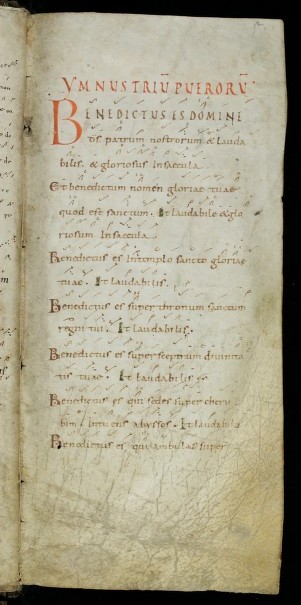 YMNUS TRIŪ PUERORŪ·
BENEDICTUS ES DOMINE
dS patrum nostrorum & lauda
bilis. & gloriosus In saecula.
Et benedictum nomen gloriae tuae
quod est sanctum. Et laudabile & glo
riosum In saecula.
Benedictus es In templo sancto gloriae
tuae. Et laudabilis.
Benedictus es super thronum sanctum
regni tui. Et laudabilis.
Benedictus es super sceptrum divinita
tis tuae. Et laudabilis
Benedictus es qui sedes super cheru
bim. Intuens abyssos. Et laudabilis
Benedictus es qui ambulas super